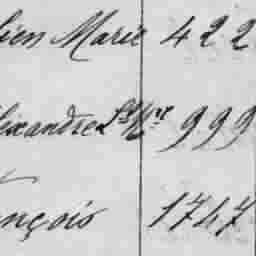 lien Marie 422
lexandre Ls Mre 999
nçois 1747